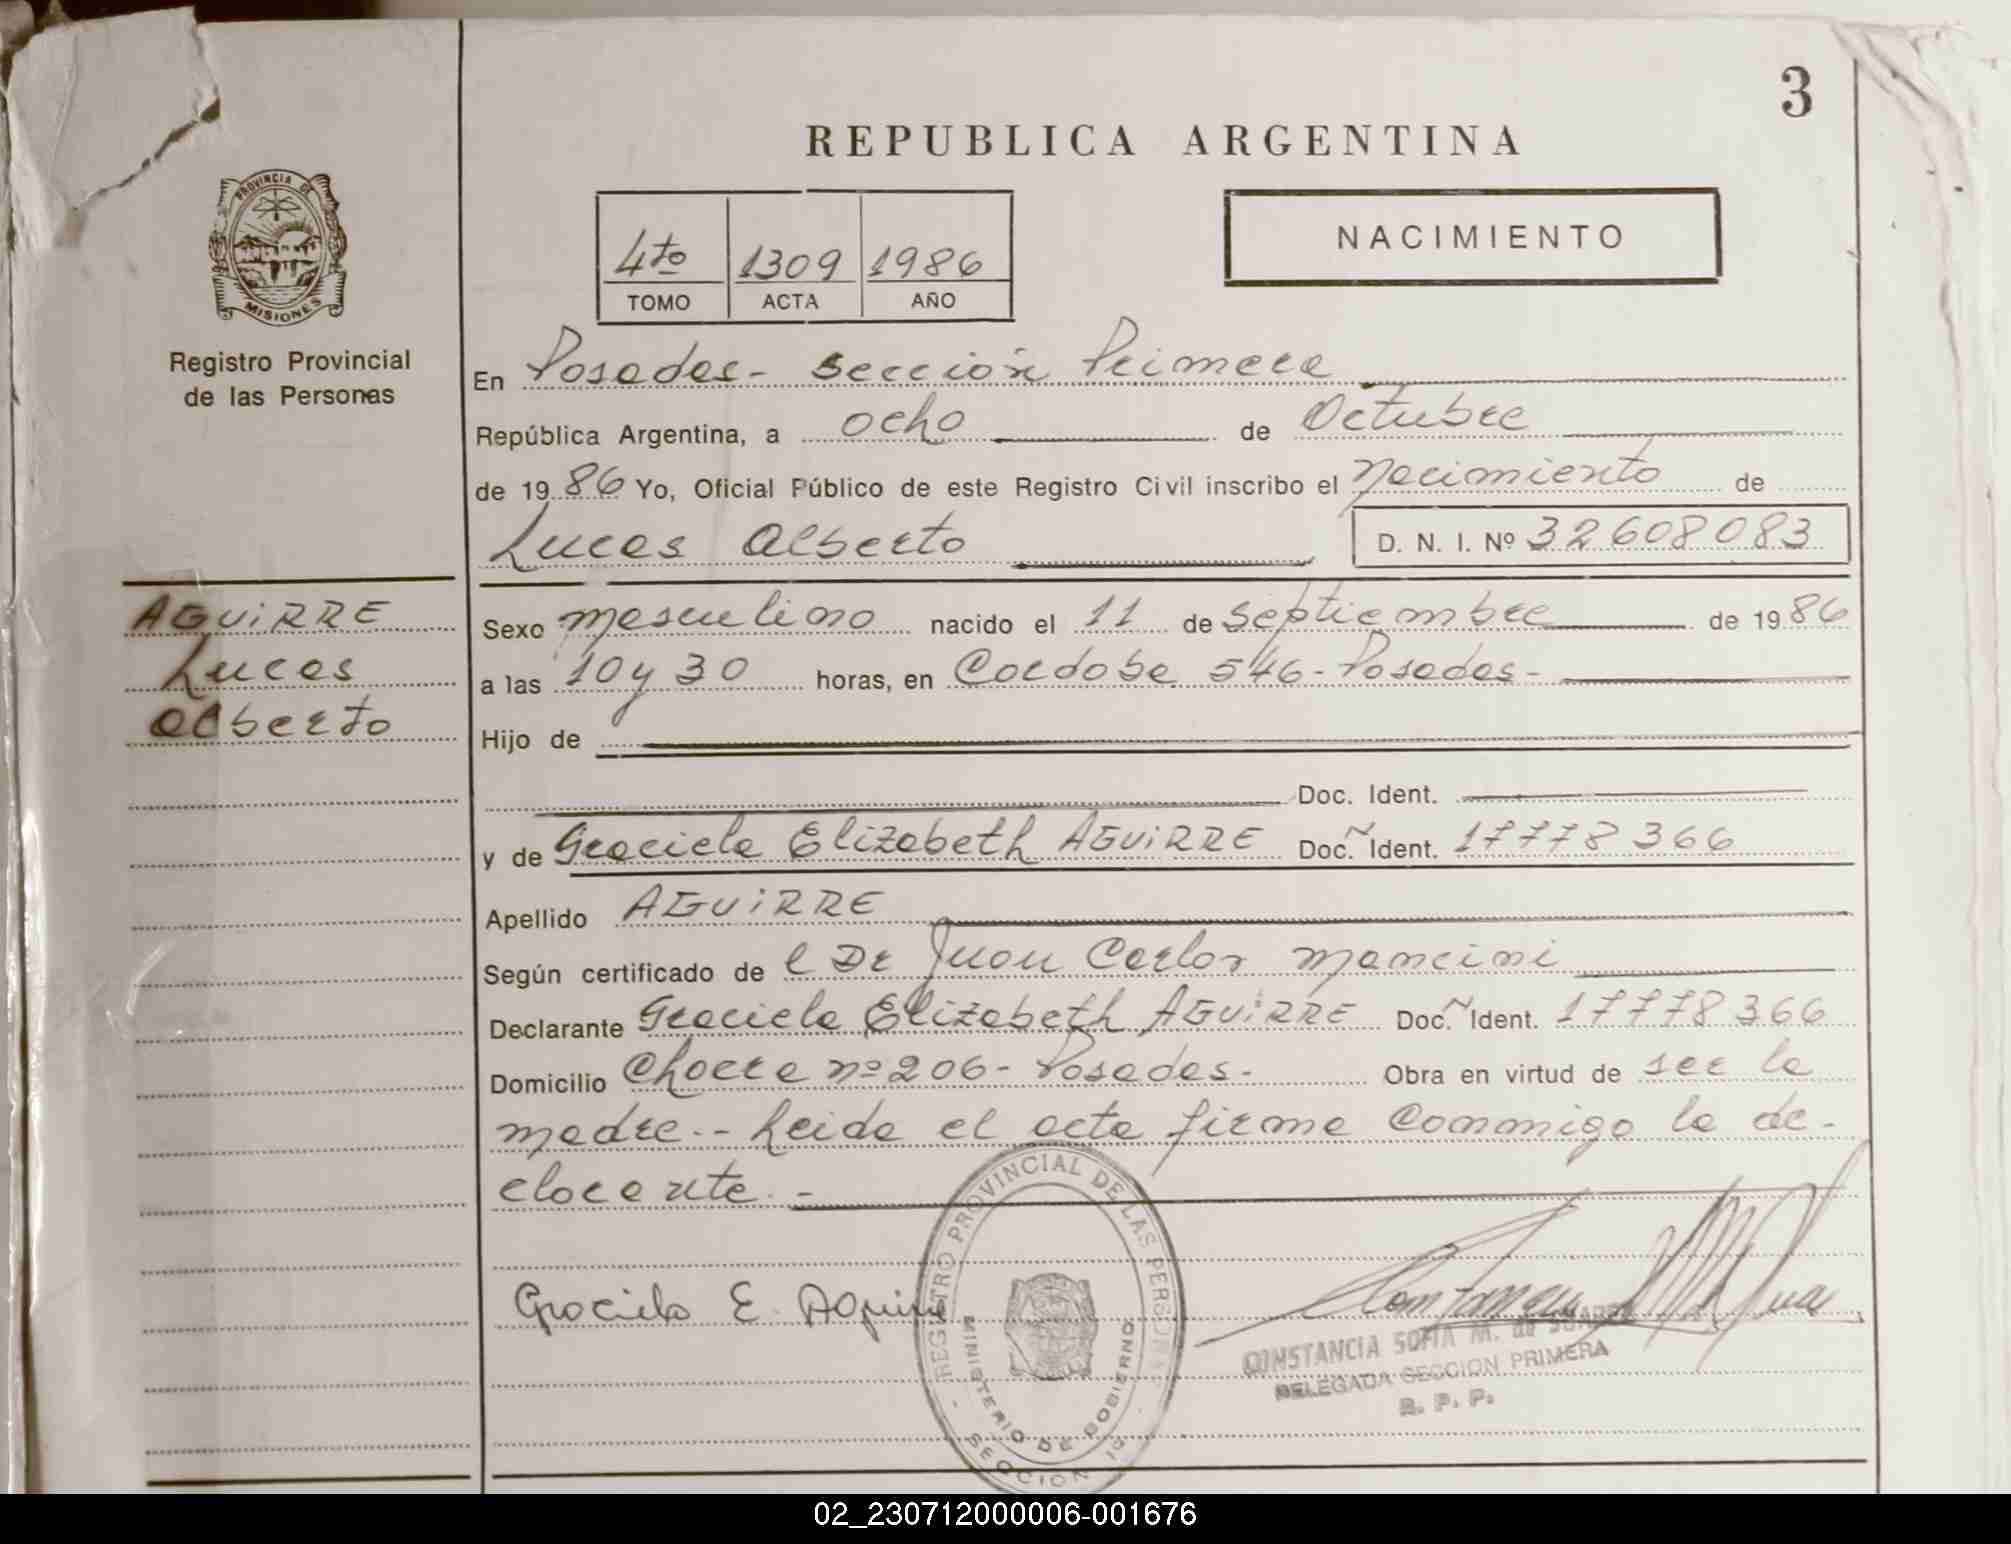 3
REPUBLICA ARGENTINA
PROVINCIA DE
MISIONES
Registro Provincial
de las Personas
4to 1309 1986
TOMO ACTA AÑO
NACIMIENTO
En Posadas - Sección Primera
República Argentina, a ocho de Octubre
de 1986 Yo, Oficial Público de este Registro Civil inscribo el Nacimiento de
Lucas Alberto D. N. I. Nº 32608083
AGUiRRE
Lucas
Alberto
Sexo masculino nacido el 11 de septiembre de 1986
a las 10 y 30 horas, en Cordoba 546 - Posadas -
Hijo de
Doc. Ident.
y de Graciela Elizabeth AGUiRRE Doc. Ident. 17778366
Apellido AGUiRRE
Según certificado de l Dr Juan Carlos Mancini
Declarante Graciela Elizabeth AGUiRRE Doc. Ident. 17778366
Domicilio Chacra nº 206 - Posadas - Obra en virtud de ser la
madre. - Leida el acta firma conmigo la de-
clarante. -
Graciela E. Aguirre
REGISTRO PROVINCIAL DE LAS PERSONAS
MINISTERIO DE GOBIERNO
- SECCION 1ª -
CONSTANCIA SOFIA M. de SUAREZ
DELEGADA SECCION PRIMERA
R. P. P.
02_230712000006-001676